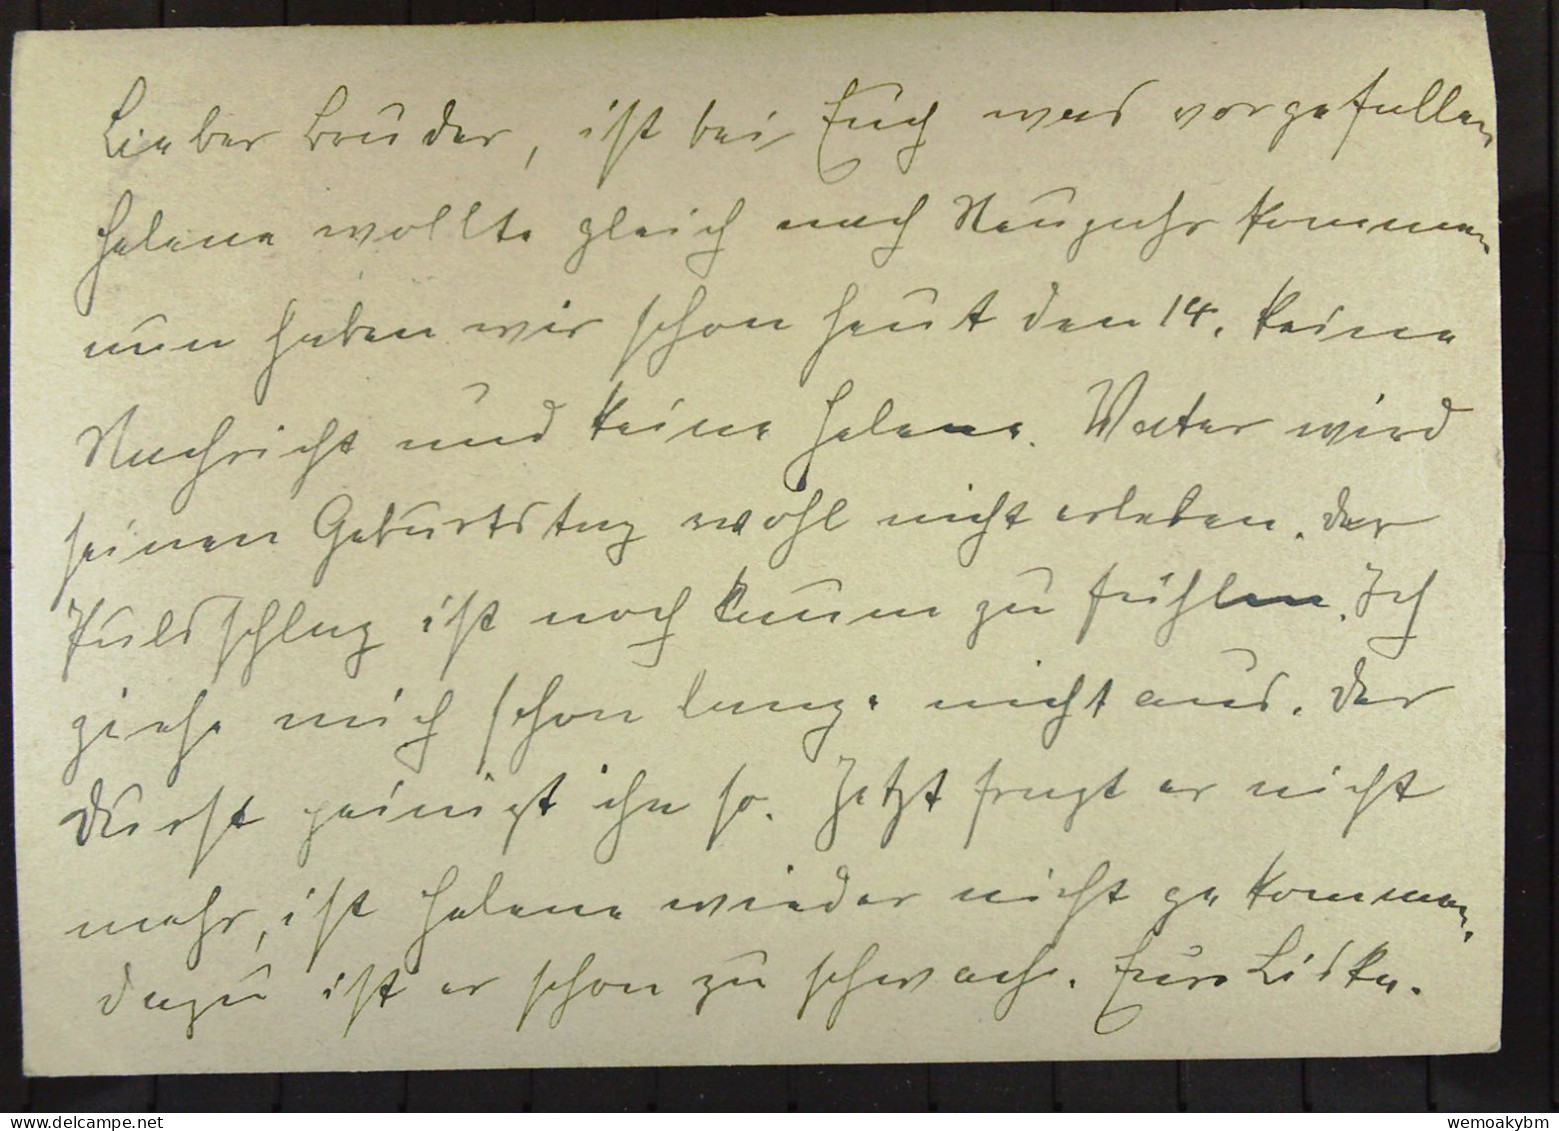 Lieber Bruder, ist bei Euch was vorgefallen
Helene wollte gleich nach Neujahr kommen
nun haben wir schon heut den 14. keine
Nachricht und keine Helene. Vater wird
seinen Geburtstag wohl nicht erleben. der
Pulsschlag ist noch kaum zu fühlen. Ich
ziehe mich schon lange nicht aus. Der
Durst peinigt ihn so. Jetzt fragt er nicht
mehr, ist Helene wieder nicht gekommen.
dazu ist er schon zu schwach. Eure Liska.
wemoakybm
www.delcampe.net